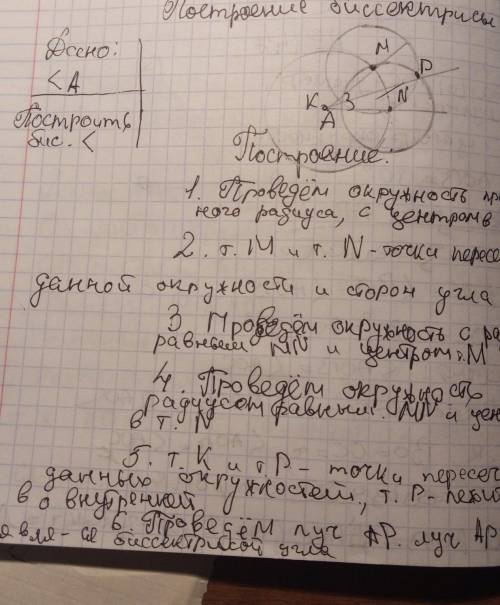 Построение биссектрисы
Дано:
<A
Построить
бис. <
M
P
K
3
N
A
Построение.
1. Проведём окружность
ного радиуса, с центром в
2. т. M и т. N - точки пересе
данной окружности и сторон угла
3 Проведём окружность с ра
равным MN и центром т. M
4. Проведём окружность
радиусом равным. MN и цен
в т. N
5. т. K и т. P - точки пересеч
данных окружностей, т. P - лежи
в о внутренней
6. Проведём луч AP. луч AP
явля-ся биссектрисой угла